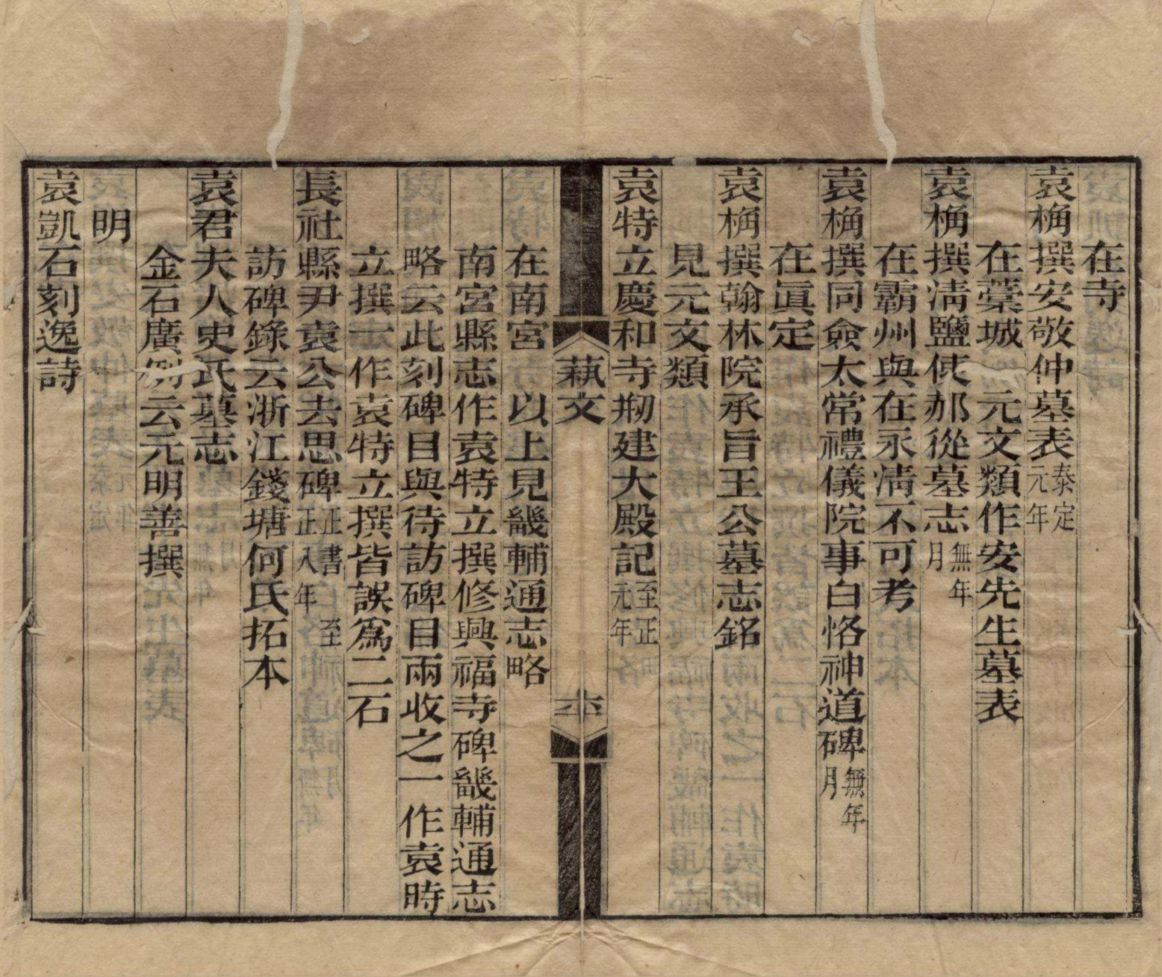 在寺
袁桷撰安敬仲墓表泰定元年
在藁城 元文類作安先生墓表
袁桷撰淸鹽使郝從墓志無年月
在霸州與在永淸不可考
袁桷撰同僉太常禮儀院事白恪神道碑無年月
在眞定
袁桷撰翰林院承旨王公墓志銘
見元文類
袁特立慶和寺刱建大殿記至正元年
藝文
在南宮 以上見畿輔通志略
南宮縣志作袁特立撰修興福寺碑畿輔通志
略云此刻碑目與待訪碑目兩收之一作袁時
立撰一作袁特立撰皆誤爲二石
長社縣尹袁公去思碑正書 至正八年
訪碑錄云浙江錢塘何氏拓本
袁君夫人史氏墓志
金石廣例云元明善撰
明
袁凱石刻逸詩